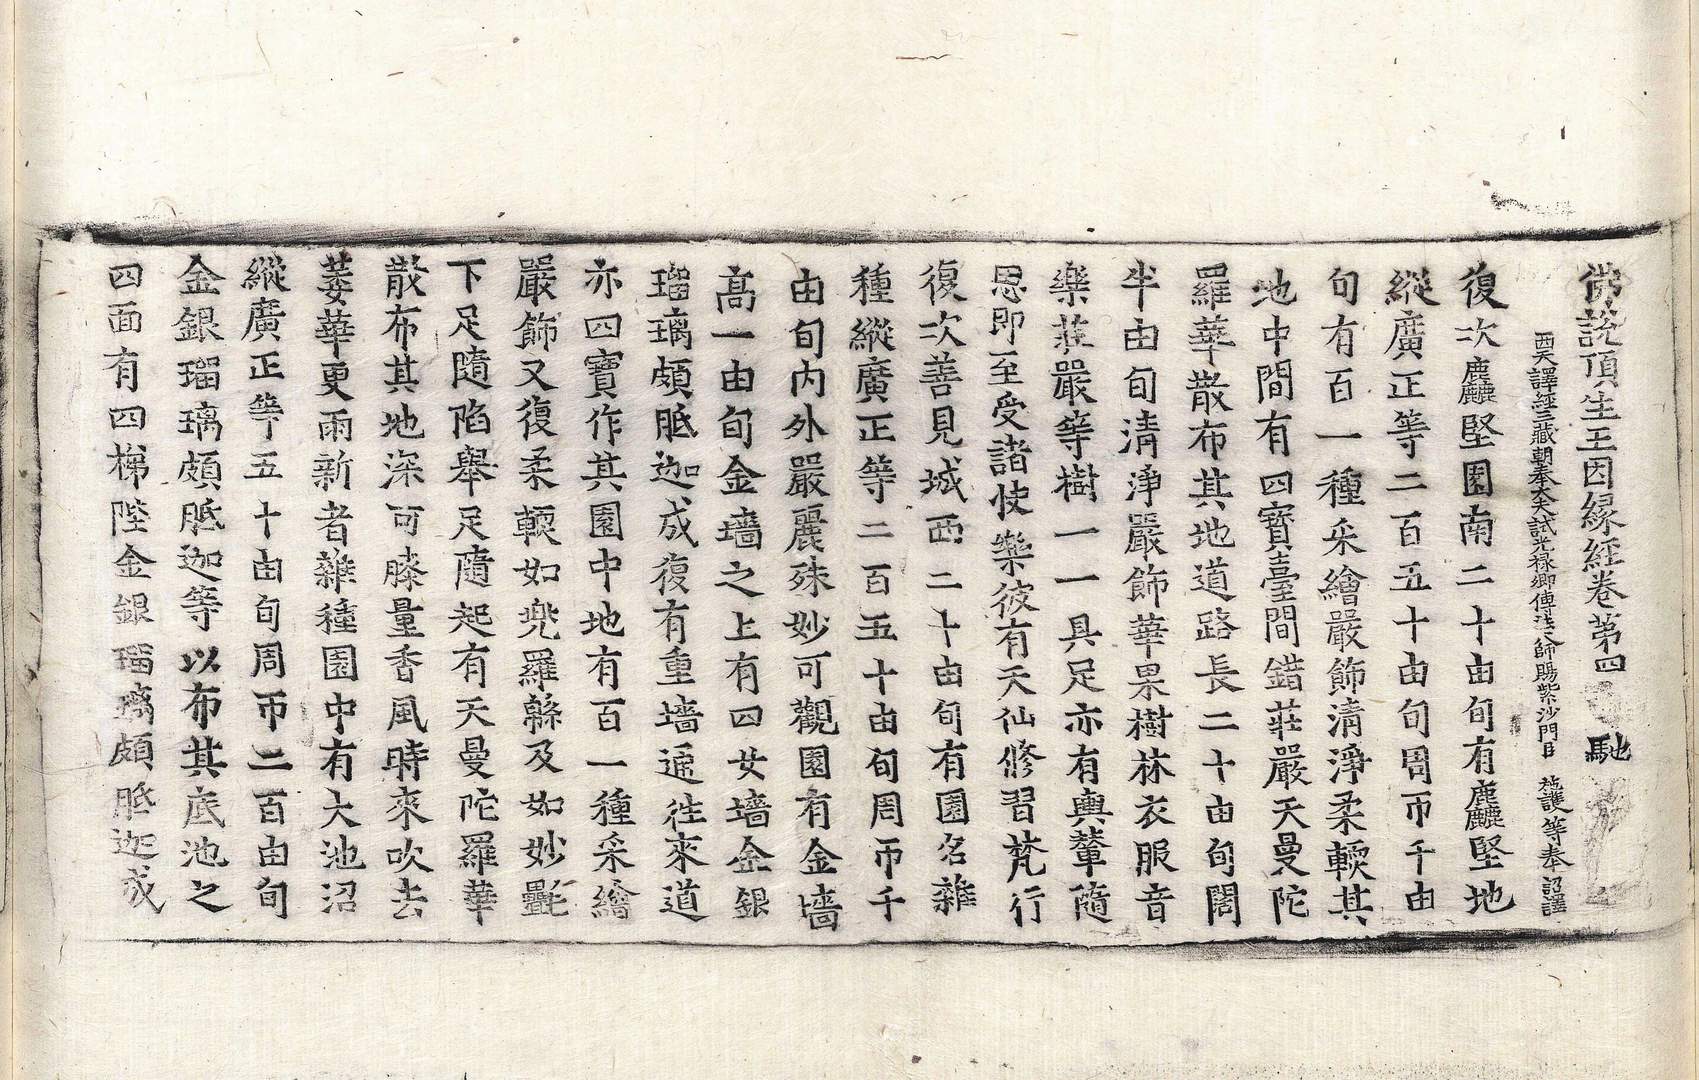 佛說頂生王因緣經卷第四 馳
西天譯經三藏朝奉大夫試光祿卿傳法大師賜紫沙門臣 施護等奉 詔譯
復次麤堅園南二十由旬有麤堅地
縱廣正等二百五十由旬周帀千由
旬有百一種采繪嚴飾清淨柔輭其
地中間有四寶臺間錯莊嚴天曼陀
羅華散布其地道路長二十由旬闊
半由旬清淨嚴飾華果樹林衣服音
樂莊嚴等樹一一具足亦有輿輦隨
思即至受諸快樂彼有天仙修習梵行
復次善見城西二十由旬有園名雜
種縱廣正等二百五十由旬周帀千
由旬內外嚴麗殊妙可觀園有金墻
高一由旬金墻之上有四女墻金銀
瑠璃頗胝迦成復有重墻遞往來道
亦四寶作其園中地有百一種采繪
嚴飾又復柔輭如兜羅緜及如妙㲲
下足隨陷舉足隨起有天曼陀羅華
散布其地深可膝量香風時來吹去
萎華更雨新者雜種園中有大池沼
縱廣正等五十由旬周帀二百由旬
金銀瑠璃頗胝迦等以布其底池之
四面有四梯陛金銀瑠璃頗胝迦成